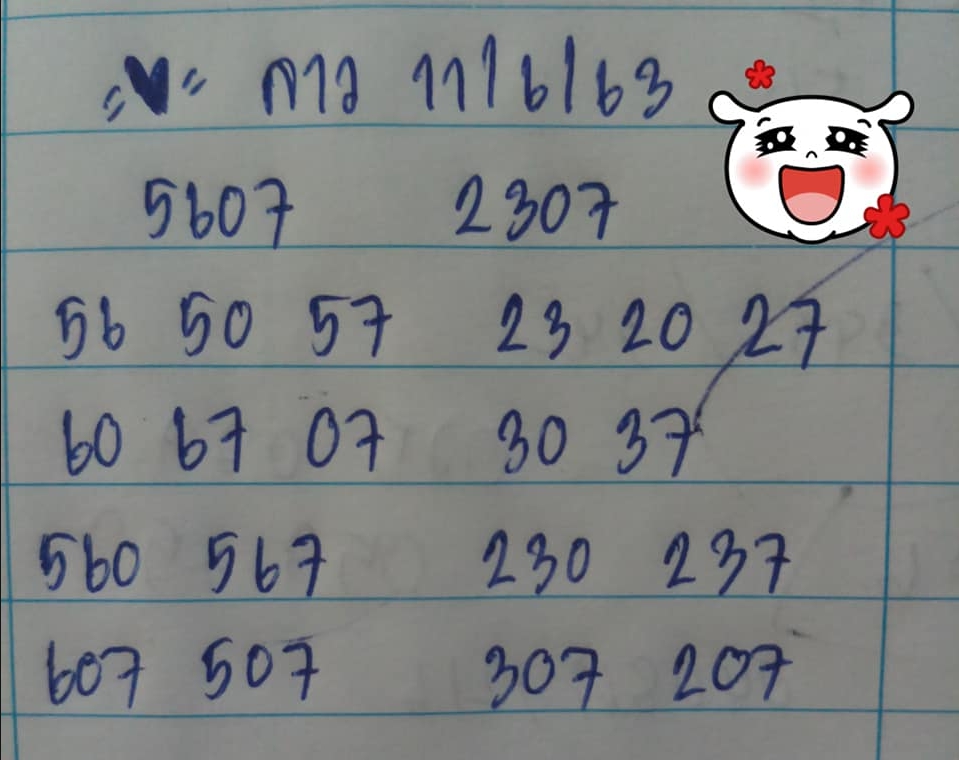 "♥" ลาว 11/6/63
5607 2307
56 50 57 23 20 27
60 67 07 30 37
560 567 230 237
607 507 307 207